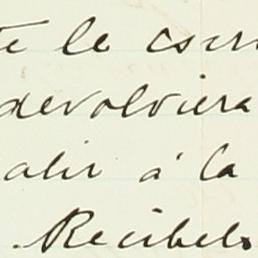 te le escri
devolviera
alir á la
Recibel